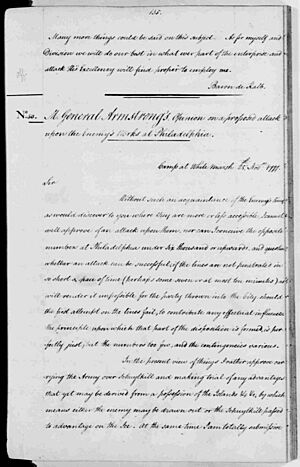 135.
Many more things could be said on this subject. As for myself and
Division we will do our best in what ever part of the enterprise and
attack His Excellency will find proper to employ me.
Baron de Kalb.
No. 30. M. General Armstrong's Opinion on a proposed attack
upon the Enemy's Works at Philadelphia.
Camp at White Marsh 25 Novr. 1777.
Sir
Without such an acquaintance of the Enemy's lines
as would discover to you where they are more or less accessible I cannot
will approve of an attack upon them, nor can I conceive the opposite
numbers at Philadelphia under six thousand or upwards, and question
whether an attack can be successful if the lines are not penetrated in
so short a space of time (perhaps some seven or at most ten minutes) as
will render it impossible for the party thrown into the City should
the first attempt on the lines fail, to contribute any effectual influence
the principle upon which that part of the disposition is formed, is per-
fectly just, but the numbers too few, and the contingencies various.
In the present view of things I rather approve car-
rying the Army over Schuylkill and making trial of any advantage
that yet may be derived from a possession of the Islands &c &c, by which
means either the enemy may be drawn out or the Schuylkill passed
to advantage on the Ice. At the same time I am totally submissive